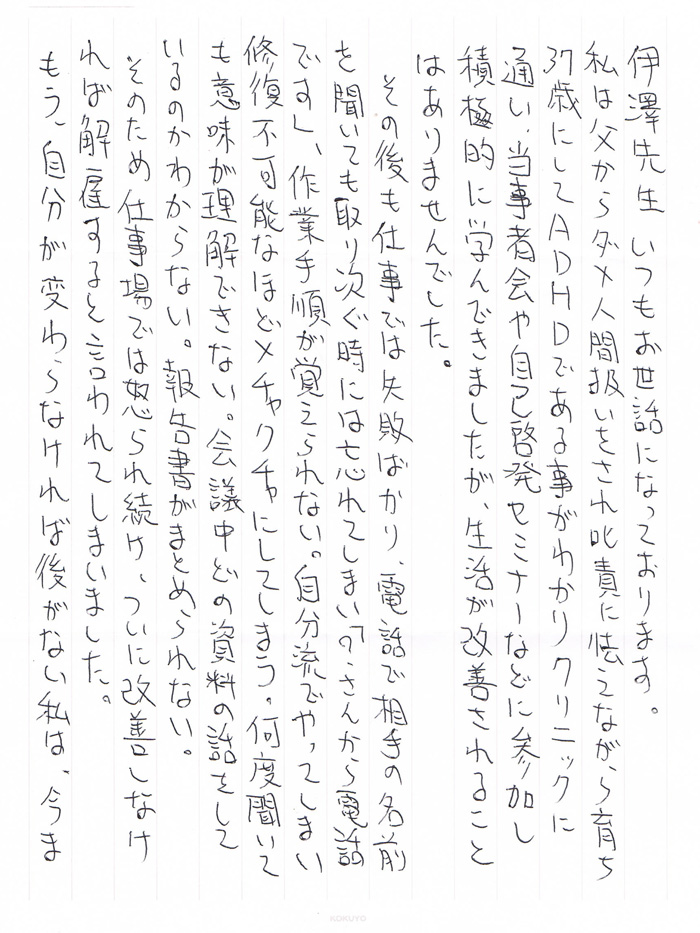 伊澤先生 いつもお世話になっております。
私は父からダメ人間扱いをされ叱責に怯えながら育ち
37歳にしてADHDである事がわかりクリニックに
通い、当事者会や自己啓発セミナーなどに参加し
積極的に学んできましたが、生活が改善されること
はありませんでした。
その後も仕事では失敗ばかり、電話で相手の名前
を聞いても取り次ぐ時には忘れてしまい「の…さんから電話
です」、作業手順が覚えられない。自分流でやってしまい
修復不可能なほどメチャクチャにしてしまう。何度聞いて
も意味が理解できない。会議中どの資料の話をして
いるのかわからない。報告書がまとめられない。
そのため仕事場では怒られ続け、ついに改善しなけ
れば解雇すると言われてしまいました。
もう、自分が変わらなければ後がない私は、今ま
KOKUYO